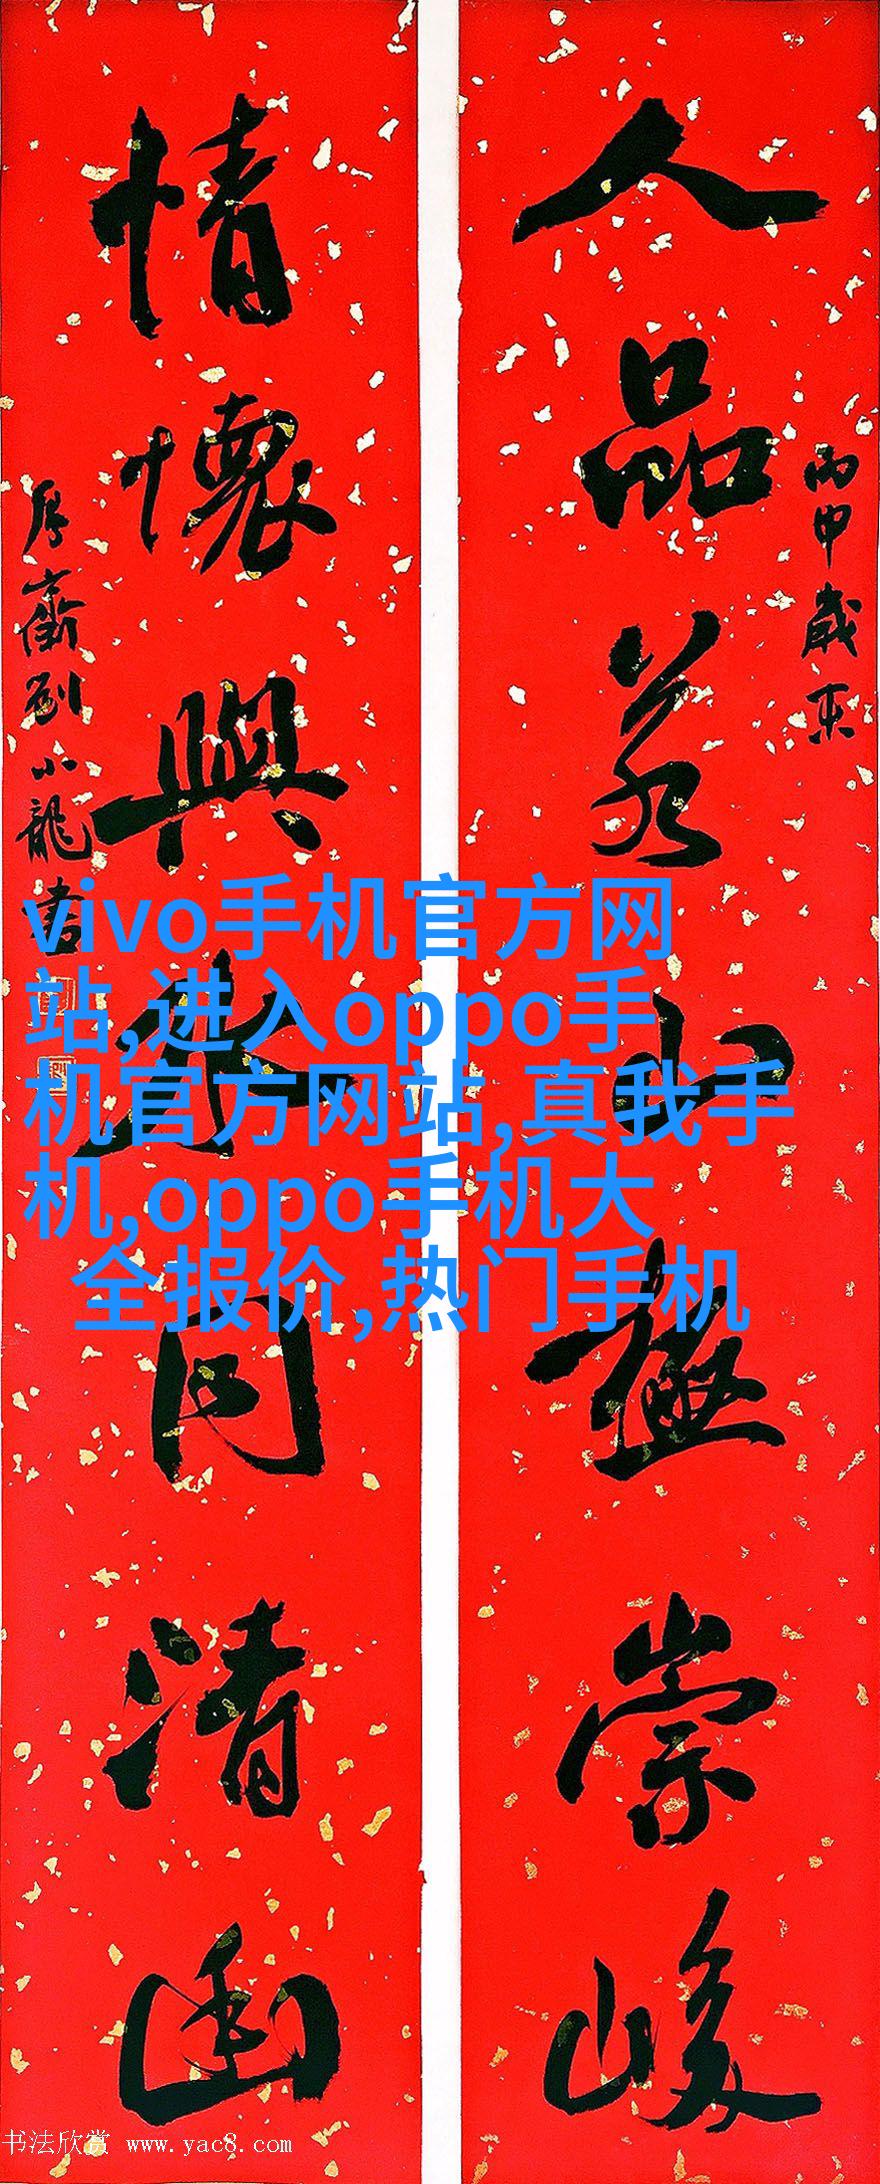 人品若山極崇峻
丙申歲
情懷與水同清幽
厚齋劉小龍書
vivo手机官方网
站,进入oppo手
机官方网站,真我手
机,oppo手机大
全报价,热门手机
书法欣赏 www.yac8.com